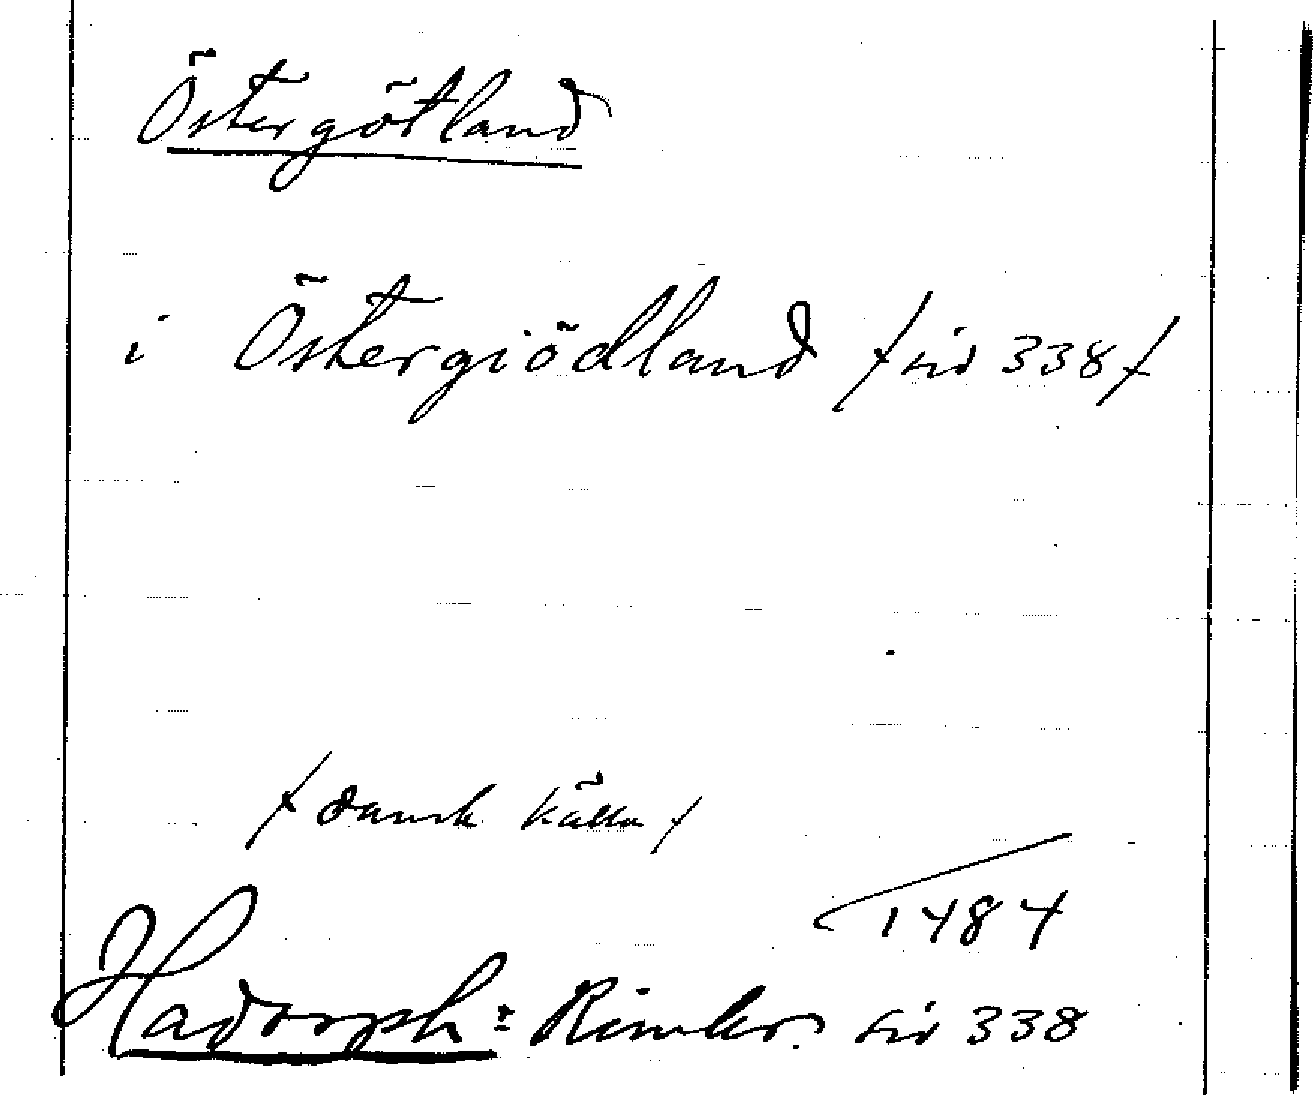 Östergötland
i Östergiödland /sid 338/
/dansk källa/
1484
Hadorph: Rimkr. sid 338